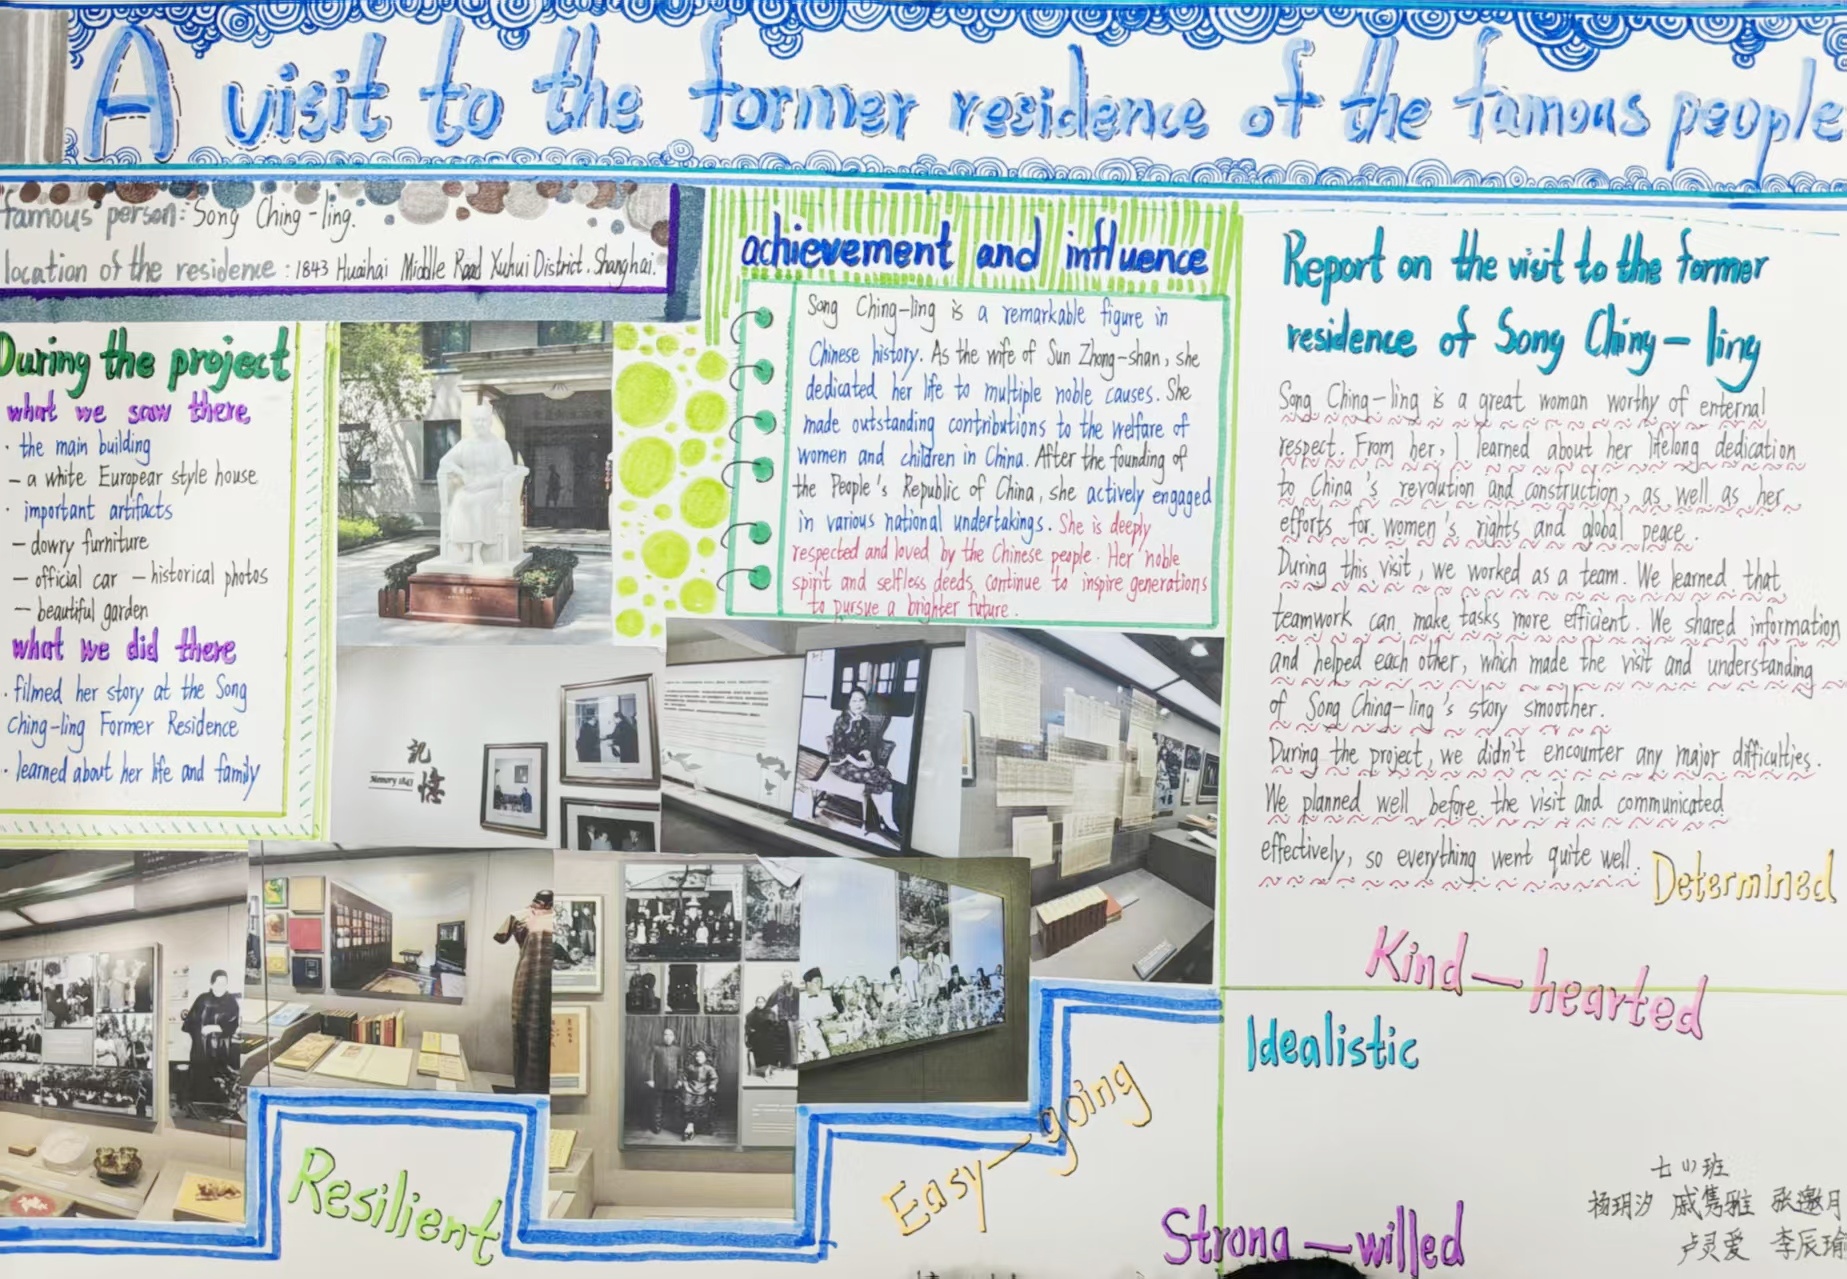 A visit to the former residence of the famous people
famous person: Song Ching-ling.
location of the residence: 1843 Huaihai Middle Road Xuhui District. Shanghai.
During the project
what we saw there
· the main building
- a white Europear style house
· important artifacts
- dowry furniture
- official car - historical photos
- beautiful garden
what we did there
· filmed her story at the Song
Ching-ling Former Residence
· learned about her life and family
achievement and influence
Song Ching-ling is a remarkable figure in
Chinese history. As the wife of Sun Zhong-shan, she
dedicated her life to multiple noble causes. She
made outstanding contributions to the welfare of
women and children in China. After the founding of
the People's Republic of China, she actively engaged
in various national undertakings. She is deeply
respected and loved by the Chinese people. Her noble
spirit and selfless deeds continue to inspire generations
to pursue a brighter future.
记忆
Memory 1843
Report on the visit to the former
residence of Song Ching-ling
Song Ching-ling is a great woman worthy of enternal
respect. From her, I learned about her lifelong dedication
to China's revolution and construction, as well as her
efforts for women's rights and global peace.
During this visit, we worked as a team. We learned that
teamwork can make tasks more efficient. We shared information
and helped each other, which made the visit and understanding
of Song Ching-ling's story smoother.
During the project, we didn't encounter any major difficulties.
We planned well before the visit and communicated
effectively, so everything went quite well.
Determined
Kind-hearted
Idealistic
Easy-going
Resilient
Strong-willed
七(1)班
杨玥汐 戚隽雅 张邀月
卢灵爱 李辰瑜